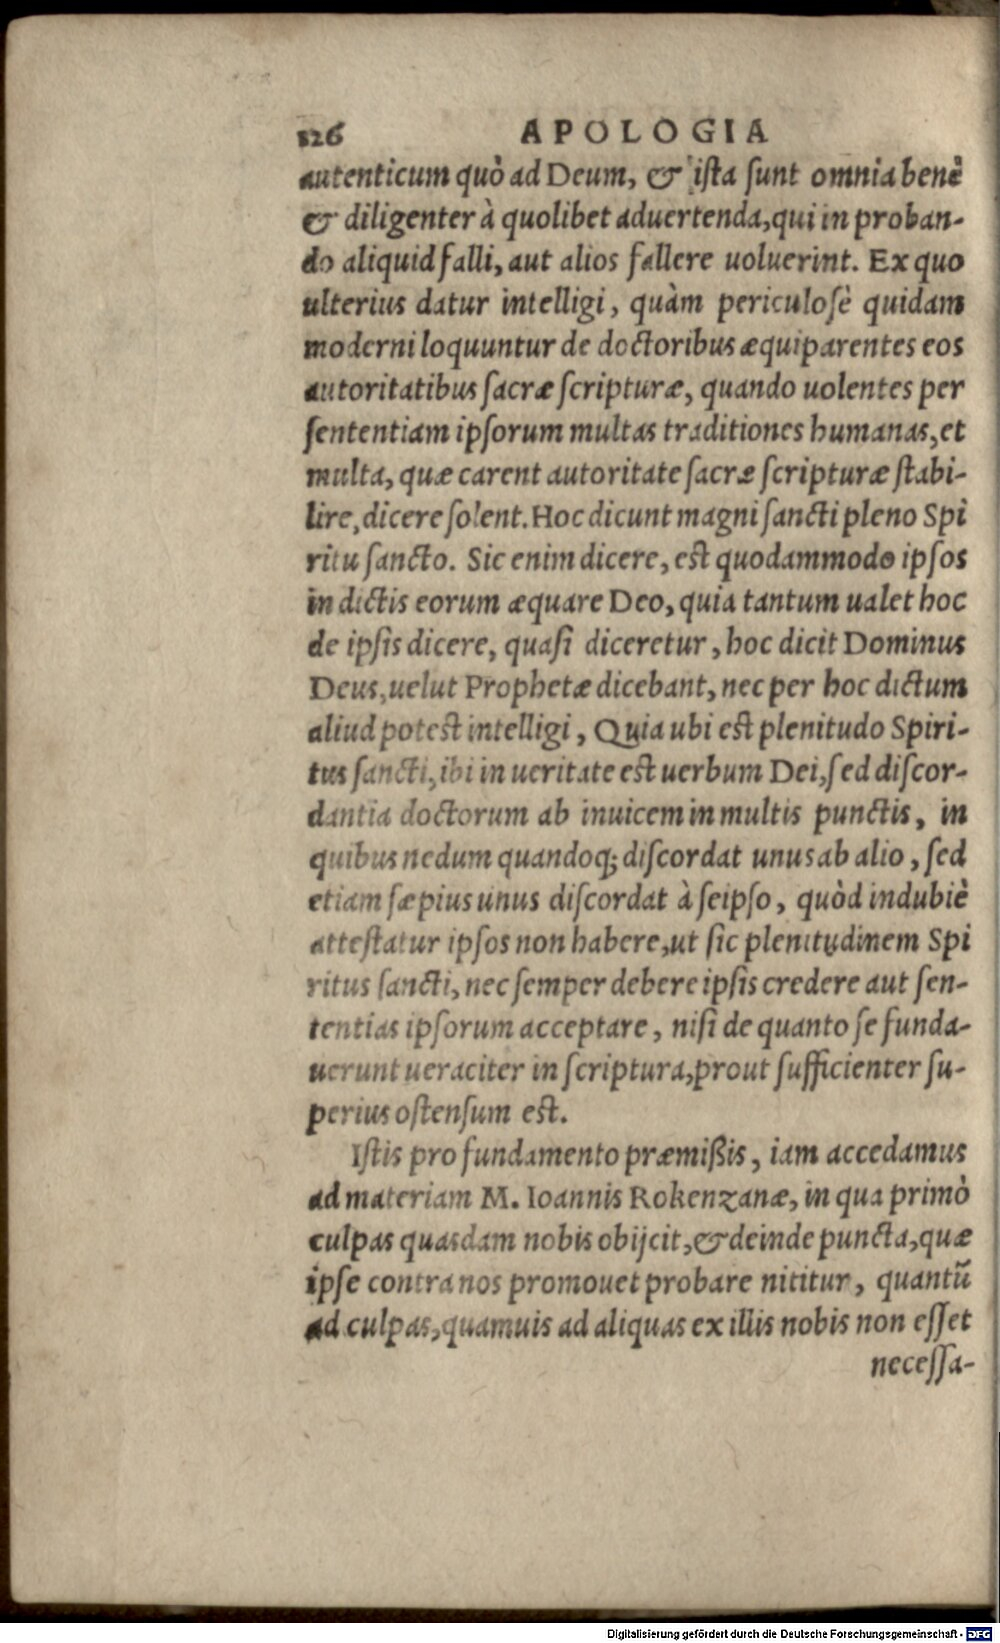 126 APOLOGIA
autenticum quò ad Deum, & ista sunt omnia benè
& diligenter à quolibet aduertenda, qui in proban-
do aliquid falli, aut alios fallere uoluerint. Ex quo
ulterius datur intelligi, quàm periculosè quidam
moderni loquuntur de doctoribus æquiparentes eos
autoritatibus sacræ scripturæ, quando uolentes per
sententiam ipsorum multas traditiones humanas, et
multa, quæ carent autoritate sacræ scripturæ stabi-
lire, dicere solent. Hoc dicunt magni sancti pleno Spi
ritu sancto. Sic enim dicere, est quodammodo ipsos
in dictis eorum æquare Deo, quia tantum ualet hoc
de ipsis dicere, quasi diceretur, hoc dicit Dominus
Deus, uelut Prophetæ dicebant, nec per hoc dictum
aliud potest intelligi, Quia ubi est plenitudo Spiri-
tus sancti, ibi in ueritate est uerbum Dei, sed discor-
dantia doctorum ab inuicem in multis punctis, in
quibus nedum quandoq; discordat unus ab alio, sed
etiam sæpius unus discordat à seipso, quòd indubiè
attestatur ipsos non habere, ut sic plenitudinem Spi
ritus sancti, nec semper debere ipsis credere aut sen-
tentias ipsorum acceptare, nisi de quanto se funda-
uerunt ueraciter in scriptura, prout sufficienter su-
perius ostensum est.
Istis pro fundamento præmißis, iam accedamus
ad materiam M. Ioannis Rokenzanæ, in qua primò
culpas quasdam nobis obijcit, & deinde puncta, quæ
ipse contra nos promouet probare nititur, quantũ
ad culpas, quamuis ad aliquas ex illis nobis non esset
necessa-
Digitalisierung gefördert durch die Deutsche Forschungsgemeinschaft - DFG